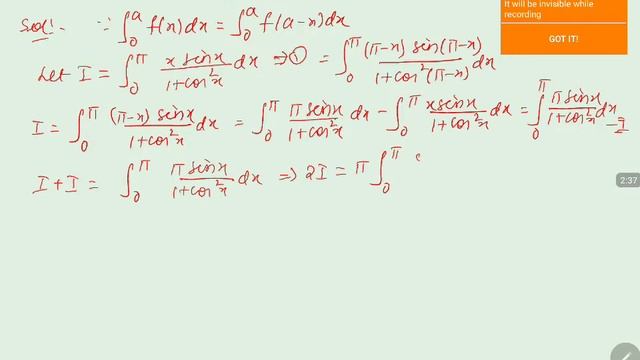 It will be invisible while
recording
GOT IT!
Sol!. ∵ ∫₀ᵃ f(x)dx = ∫₀ᵃ f(a-x)dx
Let I = ∫₀^π x sinx/(1+cos²x) dx ⇒ ① = ∫₀^π (π-x) sin(π-x)/(1+cos²(π-x)) dx
I = ∫₀^π (π-x) sinx/(1+cos²x) dx = ∫₀^π π sinx/(1+cos²x) dx - ∫₀^π x sinx/(1+cos²x) dx = ∫₀^π π sinx/(1+cos²x) dx - I
I + I = ∫₀^π π sinx/(1+cos²x) dx ⇒ 2I = π ∫₀^π
2:37